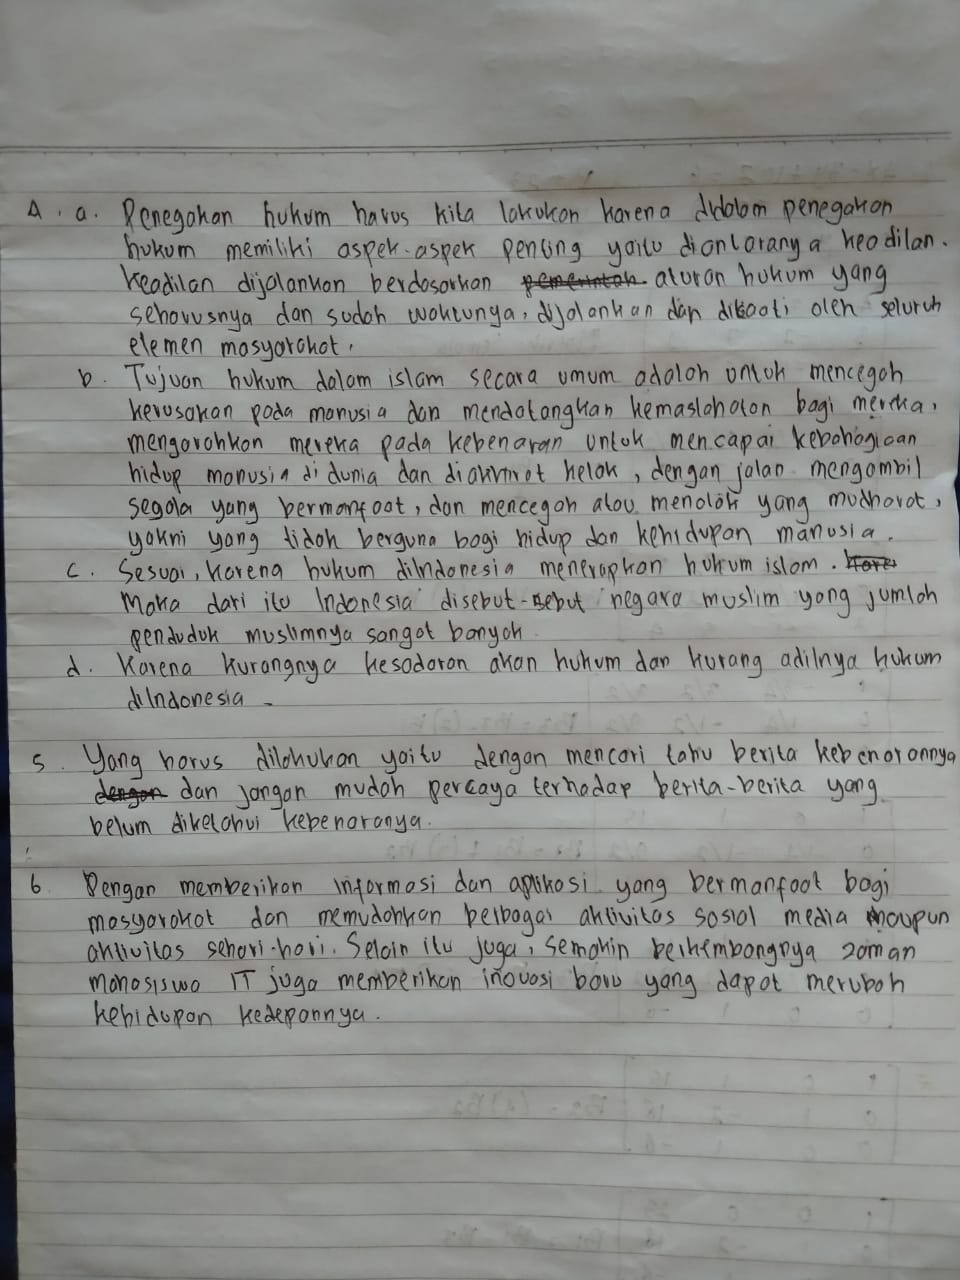 4. a. Penegakan hukum harus kita lakukan karena didalam penegakan
hukum memiliki aspek-aspek penting yaitu diantaranya keadilan.
Keadilan dijalankan berdasarkan pemerintah aturan hukum yang
seharusnya dan sudah waktunya, dijalankan dan ditaati oleh seluruh
elemen masyarakat.
b. Tujuan hukum dalam islam secara umum adalah untuk mencegah
kerusakan pada manusia dan mendatangkan kemaslahatan bagi mereka,
mengarahkan mereka pada kebenaran untuk mencapai kebahagiaan
hidup manusia di dunia dan diakhirat kelak, dengan jalan mengambil
segala yang bermanfaat, dan mencegah atau menolak yang mudharat,
yakni yang tidak berguna bagi hidup dan kehidupan manusia.
c. Sesuai, karena hukum diIndonesia menerapkan hukum islam.
Maka dari itu Indonesia disebut-sebut negara muslim yang jumlah
penduduk muslimnya sangat banyak
d. Karena kurangnya kesadaran akan hukum dan kurang adilnya hukum
diIndonesia
5. Yang harus dilakukan yaitu dengan mencari tahu berita kebenarannya
dengan dan jangan mudah percaya terhadap berita-berita yang
belum diketahui kebenaranya.
6. Dengan memberikan informasi dan aplikasi yang bermanfaat bagi
masyarakat dan memudahkan berbagai aktivitas sosial media maupun
aktivitas sehari-hari. Selain itu juga, semakin berkembangnya zaman
mahasiswa IT juga memberikan inovasi baru yang dapat merubah
kehidupan kedepannya.